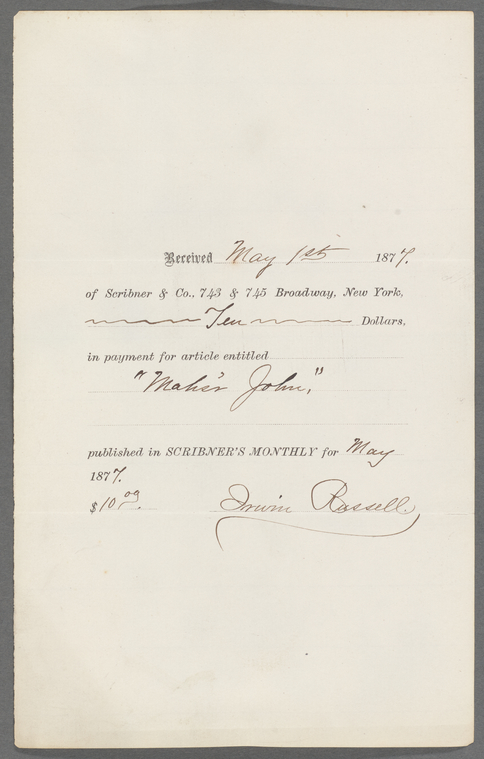 Received May 1st 1877.
of Scribner & Co., 743 & 745 Broadway, New York,
Ten Dollars,
in payment for article entitled
"Mahs'r John,"
published in SCRIBNER'S MONTHLY for May
1877.
$10.00 Irwin Russell.